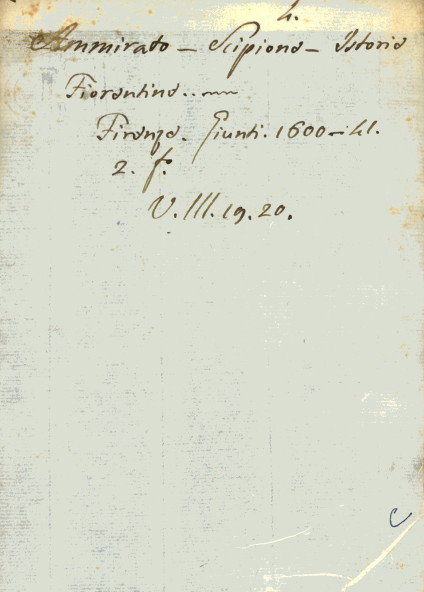 4.
Ammirato - Scipione - Istorie
Fiorentine..
Firenze. Giunti. 1600-41.
2. f.º
V. III. 19. 20.
C